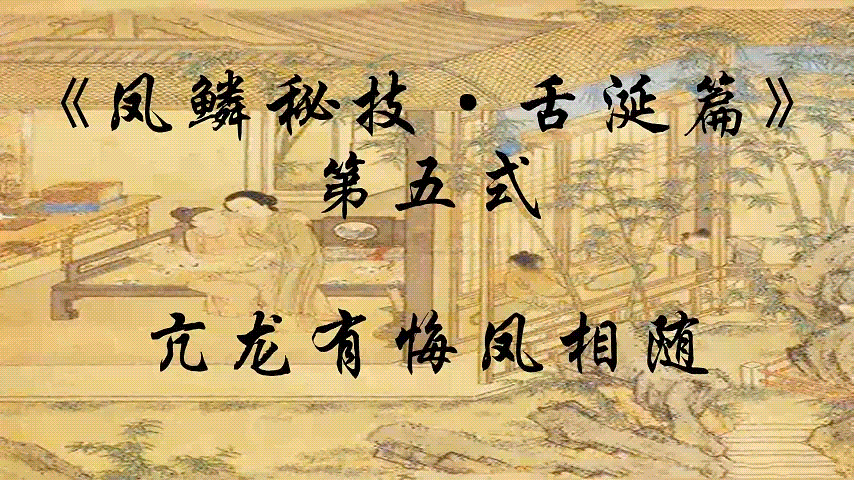 《凤鳞秘技·舌涎篇》
第五式
亢龙有悔凤相随